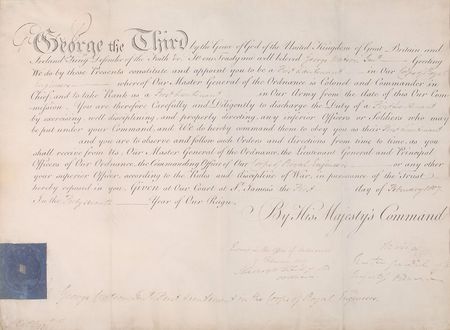 George the Third by the Grace of God of the United Kingdom of Great Britain and
Ireland King Defender of the Faith &c. To our Trusty and well beloved George Greeting
We do by these Presents constitute and appoint you to be a First Lieutenant in Our Corps of Royal
Engineers whereof Our Master General of the Ordnance is Colonel and Commander in
Chief and to take Rank as a First Lieutenant in Our Army from the date of this Our Com-
mission. You are therefore Carefully and Diligently to discharge the Duty of a First Lieutenant
by exercising, well disciplining, and properly directing, any inferior Officers or Soldiers who may
be put under your Command, and We do hereby command them to obey you as their First Lieutenant
and you are to observe and follow such Orders and directions from time to time, as you
shall receive from Us, Our Master General of the Ordnance, the Lieutenant General and Principal
Officers of Our Ordnance, the Commanding Officer of Our Corps of Royal Engineers or any other
your superior Officer, according to the Rules and discipline of War, in pursuance of the Trust
hereby reposed in you. Given at Our Court at St. James's the First day of February 1807
In the Forty Seventh Year of Our Reign.
By His Majesty's Command
George First Lieutenant in the Corps of Royal Engineers